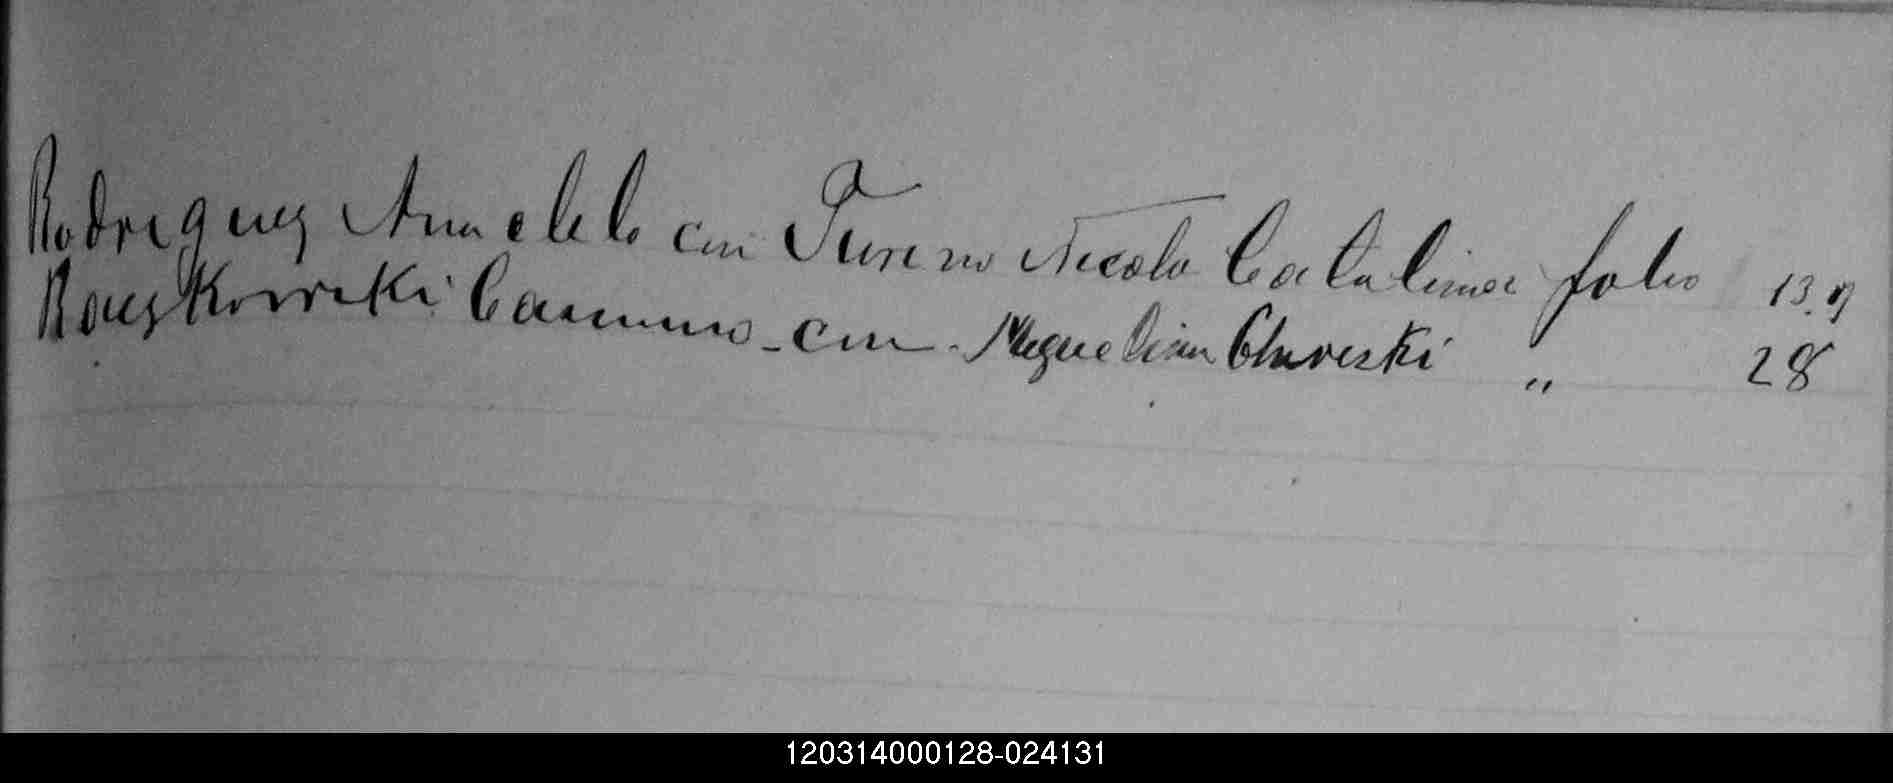 Rodriguez Anacleto con Tureno Nicola Catalina folio 13.
Rouzkowski Casimiro - con - Miguelina Chureski " 28
120314000128-024131